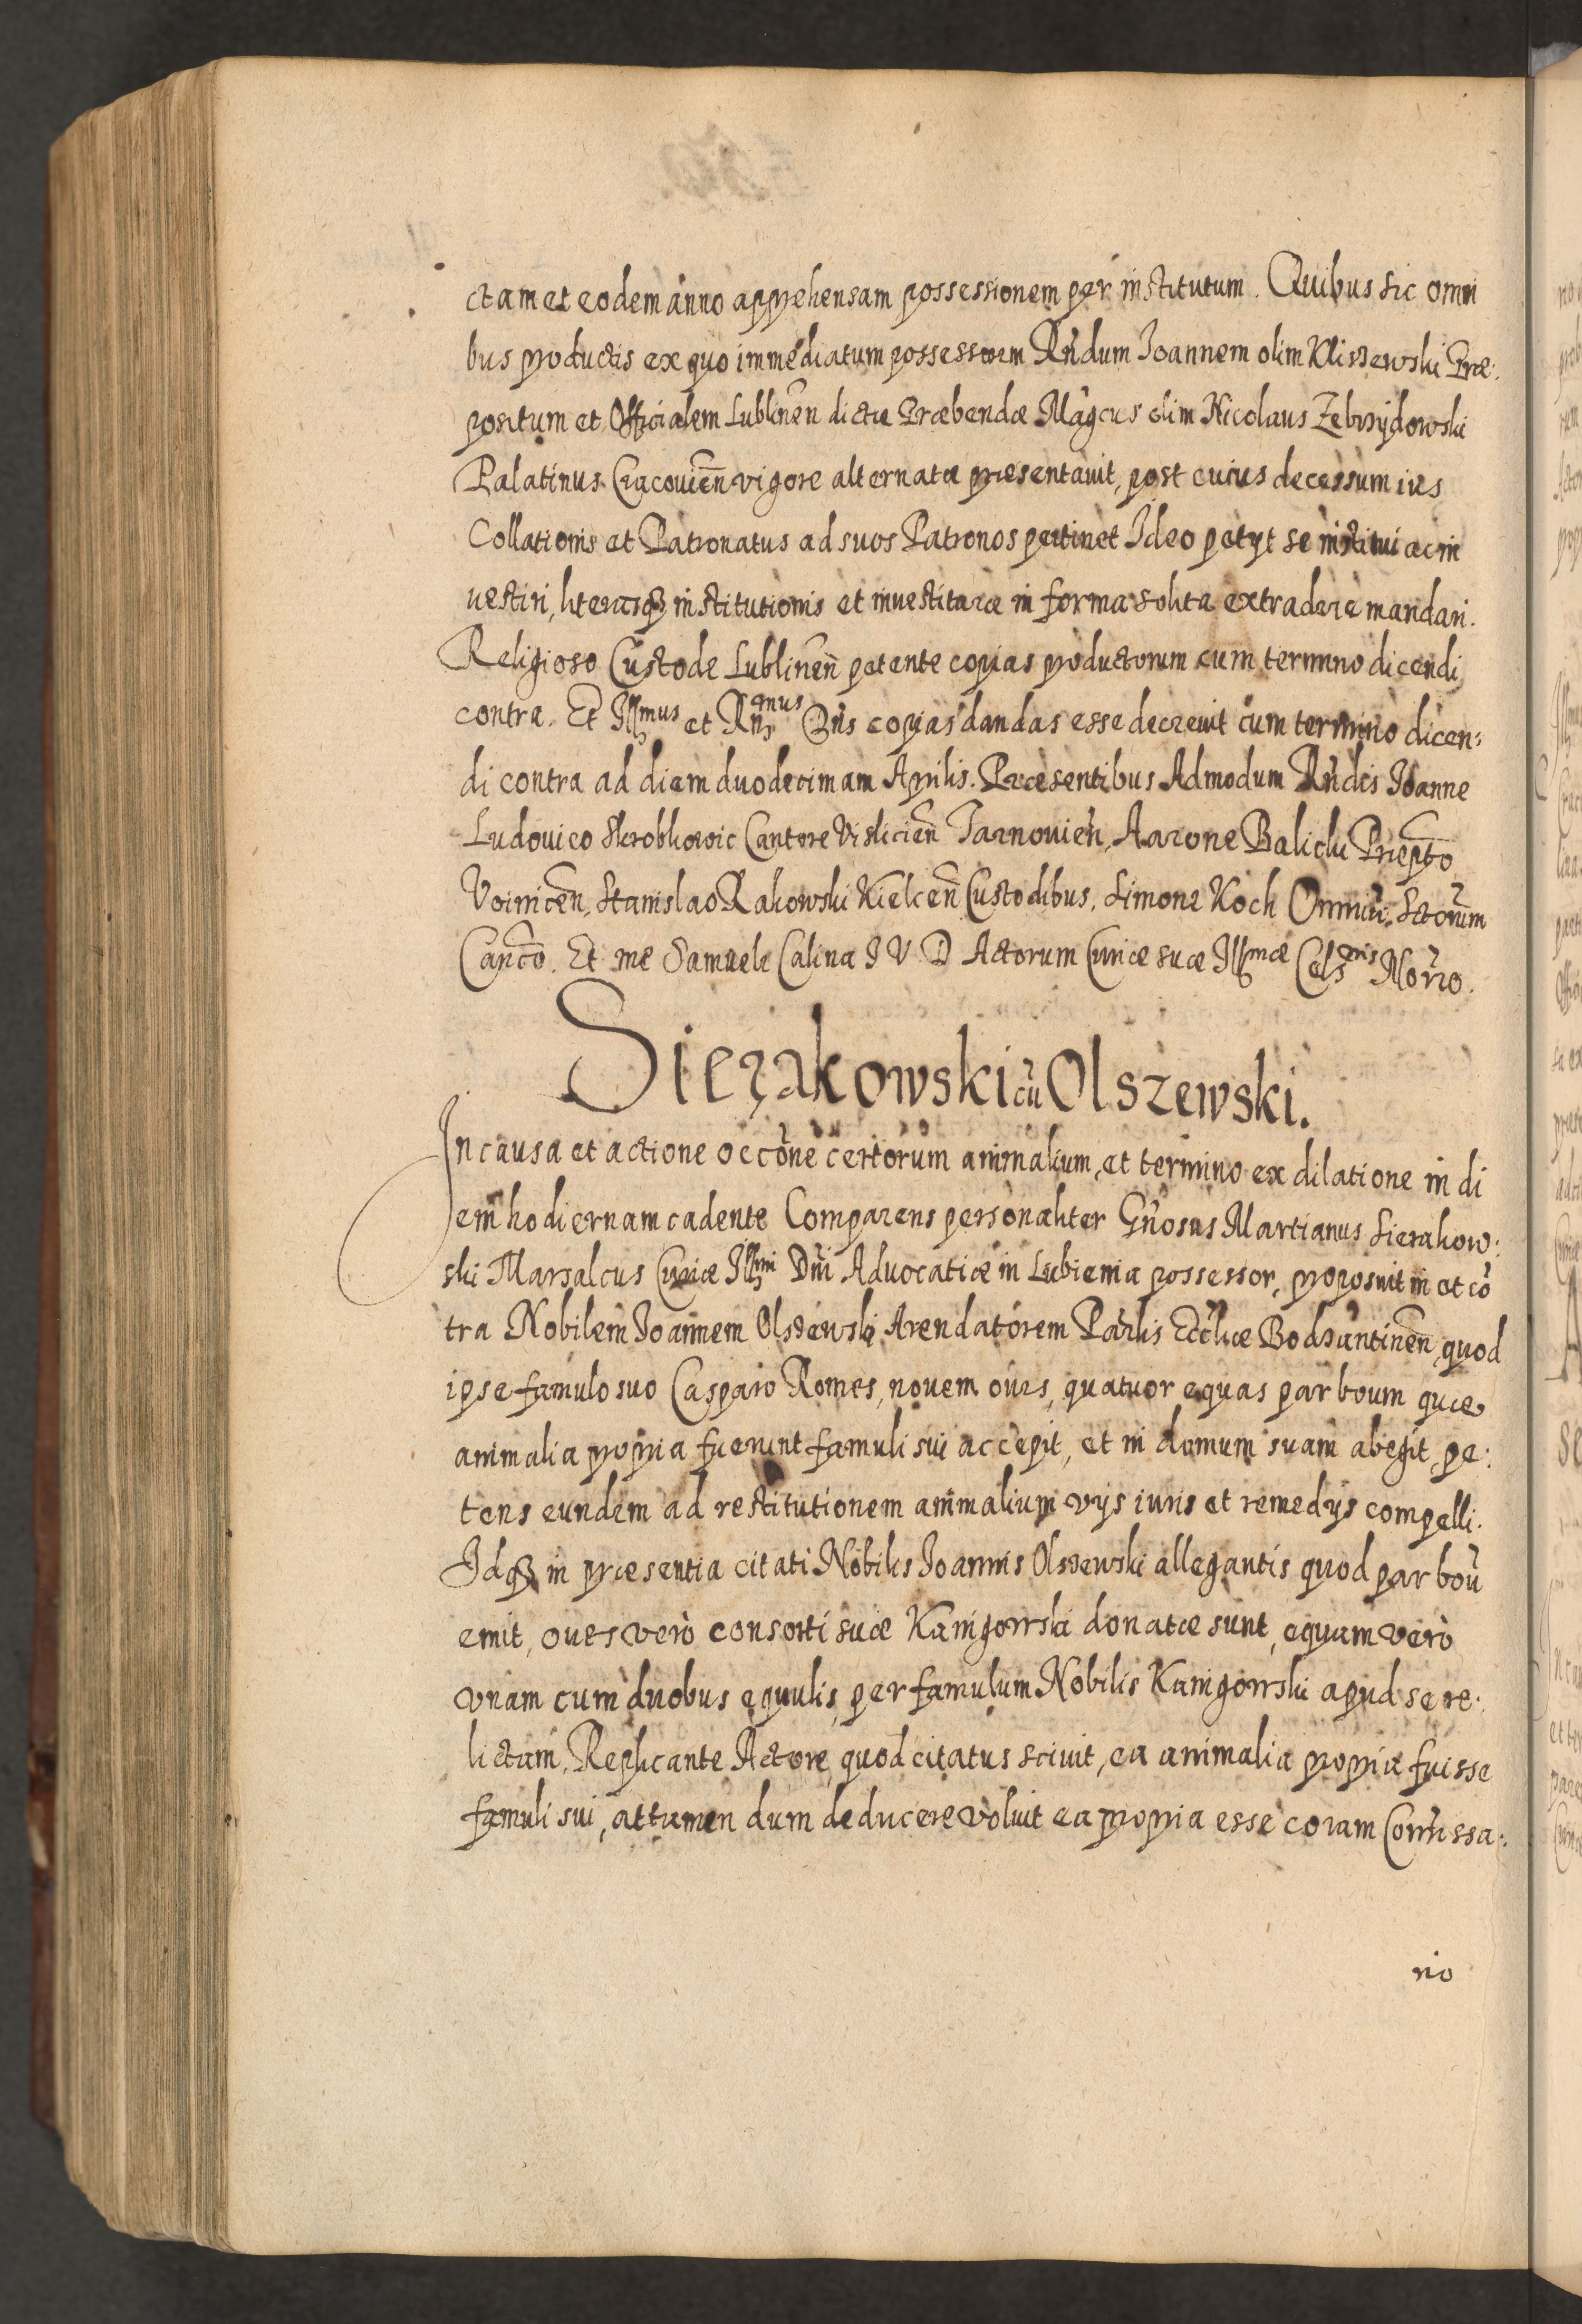 ctam et eodem anno apprehensam possessionem per institutum. Quibus sic omni
bus productis ex quo immediatum possessorem Rñdum Joannem olim Kliszewski Præ:
positum et Officialem Lublineñ dictæ Præbendæ Magcus olim Nicolaus Zebrzydowski
Palatinus Cracovieñ vigore alternatæ præsentavit, post cuius decessum ius
Collationis et Patronatus ad suos Patronos pertinet Ideo petyt se institui ac in
vestiri, literasqȝ institutionis et investituræ in forma solita extradere mandari.
Religioso Custode Lublineñ petente copias productorum cum termino dicendi
contra. Et Illmus et Rñmus Dñs copias dandas esse decrevit cum termino dicen:
di contra ad diem duodecimam Aprilis. Præsentibus Admodum Rñdis Joanne
Ludovico Skroblkowic Cantore Vislicieñ Tarnovieñ, Aarone Balicki Præpto
Voiniceñ, Stanislao Rakowski Kielceñ Custodibus, Simone Koch Omniũ Sctorum
Canco. Et me Samuele Calina J V D Actorum Curiæ suæ Illmæ Celsnis Norio.
Sierakowski cũ Olszewski.
In causa et actione occõne certorum animalium, et termino ex dilatione in di
em hodiernam cadente Comparens personaliter Gñosus Martianus Sierakow:
ski Marsalcus Curiæ Illmi Dñi Advocatiæ in Lubienia possessor, proposuit in et cõ
tra Nobilem Joannem Olszewski Arendatorem Parlis Ecclíæ Bodzantineñ, quod
ipse famulo suo Casparo Romes, novem oves, quatuor equas par boum quæ
animalia propria fuerunt famuli sui accepit, et in domum suam abegit, pe:
tens eundem ad restitutionem animalium vijs iuris et remedijs compelli.
Idqȝ in præsentia citati Nobilis Joannis Olszewski allegantis quod par boũ
emit, oves verò consorti suæ Kanigowski donatæ sunt, equam verò
vnam cum duobus equulis, per famulum Nobilis Kanigowski apud se re:
lictam, Replicante Actore, quod citatus scivit, ea animalia propria fuisse
famuli sui, attamen dum deducere voluit ea propria esse coram Comissa:
rio